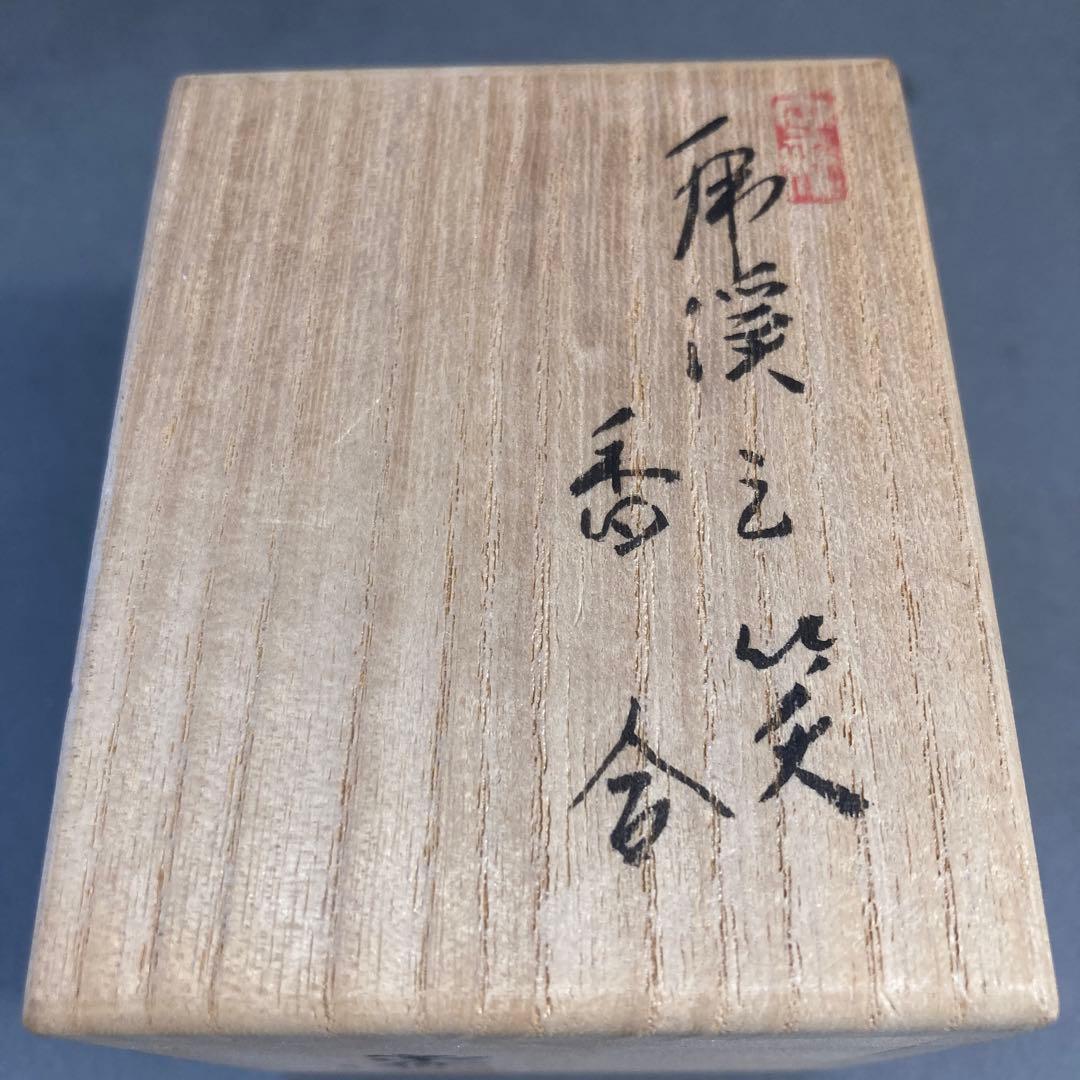 虎渓之笑
香合